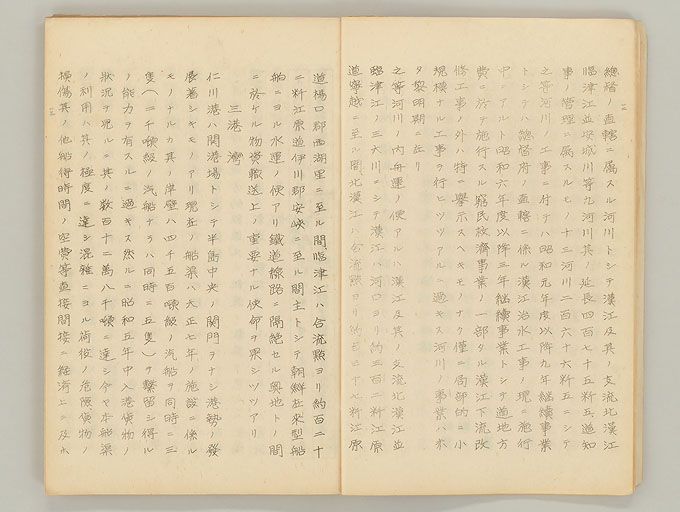 総督ノ直轄ニ属スル河川トシテ漢江及其ノ支流北漢江
臨津江並安城川等九河川其ノ延長四百七十五粁五道知
事ノ管理ニ属スルモノ十三河川二百六十六粁五ニシテ
之等河川ノ工事ニ付テハ昭和元年度以降九年継続事業
トシテ総督府ノ直轄ニ係ル漢江治水工事ノ現ニ施行
中ノアルト昭和六年度以降三年継続事業トシテ道地方
費ニ於テ施行スル窮民救済事業ノ一部タル漢江下流改
修工事ノ外ハ特ニ挙示スヘキモノナク僅ニ局部的ニ小
規模ナル工事ヲ行ヒツツアルニ過キス河川ノ事業ハ未
タ黎明期ニ在リ
之等河川ノ内舟運ノ便アルハ漢江及其ノ支流北漢江並
臨津江ノ三大川ニシテ漢江ハ河口ヨリ約三百二粁江原
道寧越ニ至ル間北漢江ハ合流点ヨリ約百三十七粁江原
道楊口郡西湖里ニ至ル間臨津江ハ合流点ヨリ約百二十
二粁江原道伊川郡安峡ニ至ル間主トシテ朝鮮在来型船
舶ニヨル水運ノ便アリ鉄道線路ニ隔絶セル奥地トノ間
ニ於ケル物資輸送上ノ重要ナル使命ヲ果シツツアリ
三港湾
仁川港ハ開港場トシテ半島中央ノ関門ヲナシ港勢ノ発
展著シキモノアリ現在ノ船渠ハ大正七年ノ施設ニ係ル
モノナルカ其ノ岸壁ハ四千五百噸級ノ汽船ヲ同時ニ三
隻(二千噸級ノ汽船ナラハ同時ニ五隻)ヲ繋留シ得ル
ノ能力ヲ有スルニ過キス然ルニ昭和五年中入港貨物ノ
状況ヲ見ルニ其ノ数百十二萬八千噸ニ達シ今ヤ本船渠
ノ利用ハ其ノ極度ニ達シ混雑ニヨル荷役ノ危険貨物ノ
損傷其ノ他船待時間ノ空費等直接間接ニ経済上ニ及ホ